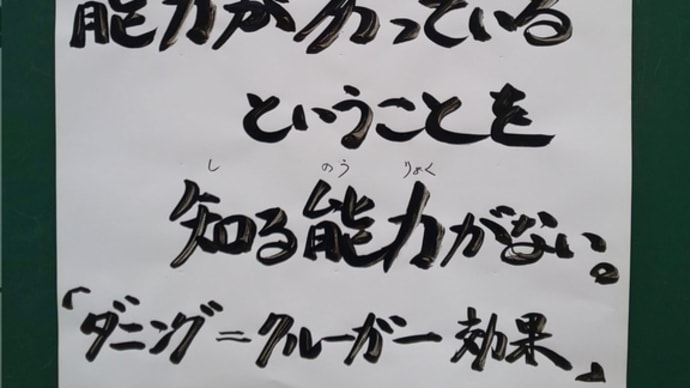 能力が劣っている
ということを
し のう りょく
知る能力がない。
「ダニング＝クルーガー効果」